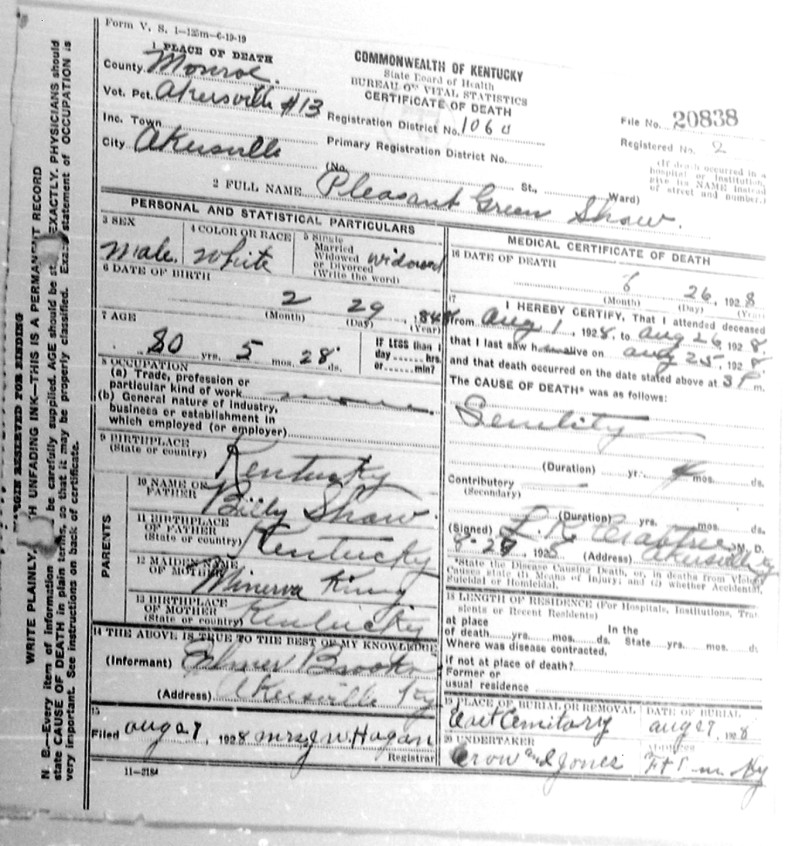 Form V. S. 1-125m-6-19-19
1 PLACE OF DEATH
County Monroe.
Vot. Pct. Akersville #13
Inc. Town
City Akersville
COMMONWEALTH OF KENTUCKY
State Board of Health
BUREAU OF VITAL STATISTICS
CERTIFICATE OF DEATH
Registration District No. 1060
Primary Registration District No.
File No. 20838
Registered No. 2
(If death occurred in a
hospital or Institution,
give its NAME instead
of street and number.)
(No. St., Ward)
2 FULL NAME Pleasant Green Shaw.
PERSONAL AND STATISTICAL PARTICULARS
3 SEX
Male.
4 COLOR OR RACE
White
5 Single
Married
Widowed
or Divorced
(Write the word)
widowed
6 DATE OF BIRTH
2 29 1848
(Month) (Day) (Year)
7 AGE
80 yrs. 5 mos. 28 ds.
IF LESS than 1
day hrs.
or min?
8 OCCUPATION
(a) Trade, profession or
particular kind of work none.
(b) General nature of industry,
business or establishment in
which employed (or employer)
9 BIRTHPLACE
(State or country) Kentucky
PARENTS
10 NAME OF
FATHER Billy Shaw.
11 BIRTHPLACE
OF FATHER
(State or country) Kentucky
12 MAIDEN NAME
OF MOTHER Minerva King
13 BIRTHPLACE
OF MOTHER
(State or country) Kentucky
14 THE ABOVE IS TRUE TO THE BEST OF MY KNOWLEDGE
(Informant) Elmer Brooks
(Address) Akersville Ky
15
Filed Aug 27, 1928 Mrs J W Hagan
Registrar
11-3184
MEDICAL CERTIFICATE OF DEATH
16 DATE OF DEATH
26, 1928
(Month) (Day) (Year)
17
I HEREBY CERTIFY, That I attended deceased
from Aug 1, 1928, to Aug 26 1928
that I last saw h alive on Aug 25, 1928
and that death occurred on the date stated above at 3 P m.
The CAUSE OF DEATH* was as follows:
Senility
(Duration) yr. 4 mos. ds.
Contributory
(Secondary)
(Duration) yrs. mos. ds.
(Signed) Crabtree M. D.
(Address) Akersville Ky
*State the Disease Causing Death, or, in deaths from Violent
Causes state (1) Means of Injury; and (2) whether Accidental,
Suicidal or Homicidal.
18 LENGTH OF RESIDENCE (For Hospitals, Institutions, Tran
sients or Recent Residents)
at place In the
of death yrs. mos. ds. State yrs. mos. ds
Where was disease contracted,
if not at place of death?
Former or
usual residence
19 PLACE OF BURIAL OR REMOVAL
Cemitary
DATE OF BURIAL
Aug 27, 1928
20 UNDERTAKER
Crow and Jones
Address
Ky
MARGIN RESERVED FOR BINDING
WRITE PLAINLY, WITH UNFADING INK—THIS IS A PERMANENT RECORD
N. B.—Every item of information be carefully supplied. AGE should be st EXACTLY. PHYSICIANS should
state CAUSE OF DEATH in plain terms, so that it may be properly classified. Exact statement of OCCUPATION is
very important. See instructions on back of certificate.